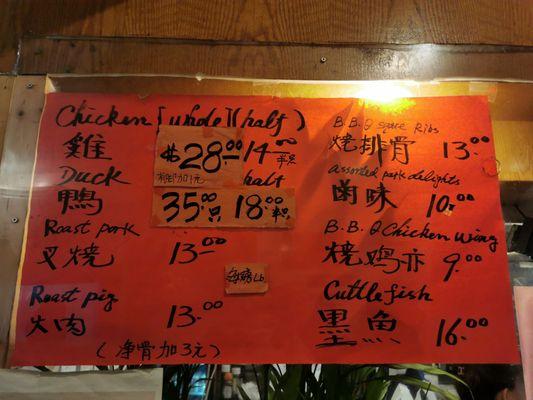 Chicken [whole] (half)
雞 $28.00 14.00 半只
Duck half
鴨 35.00 只 18.00 半只
Roast pork
叉燒 13.00
每磅 Lb
Roast pig
火肉 13.00
(净骨加3元)
B.B.Q spare Ribs
燒排骨 13.00
assorted pork delights
卤味 10.00
B.B.Q Chicken wing
燒鸡亦 9.00
Cuttlefish
墨魚 16.00